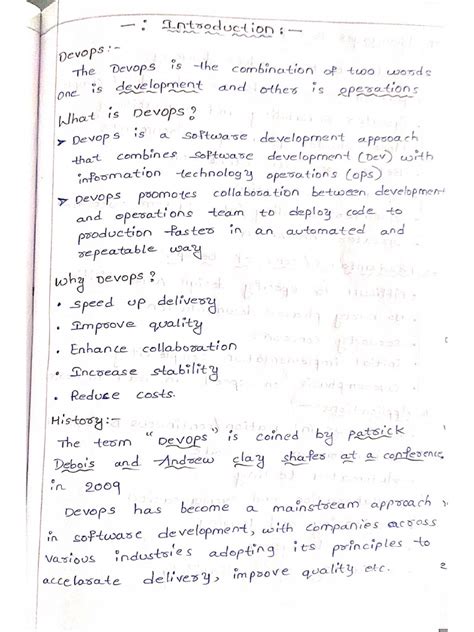 -: Introduction :-
Devops:-
The Devops is the combination of two words
one is development and other is operations
What is Devops?
➤ Devops is a software development approach
that combines software development (Dev) with
information technology operations (ops)
➤ Devops promotes collaboration between development
and operations team to deploy code to
production faster in an automated and
repeatable way
Why Devops?
• speed up delivery
• Improve quality
• Enhance collaboration
• Increase stability
• Reduce costs.
History:-
The term "Devops" is coined by patrick
Debois and Andrew clay shafer at a conference
in 2009
Devops has become a mainstream approach
in software development, with companies across
various industries adopting its principles to
accelarate delivery, improve quality etc.